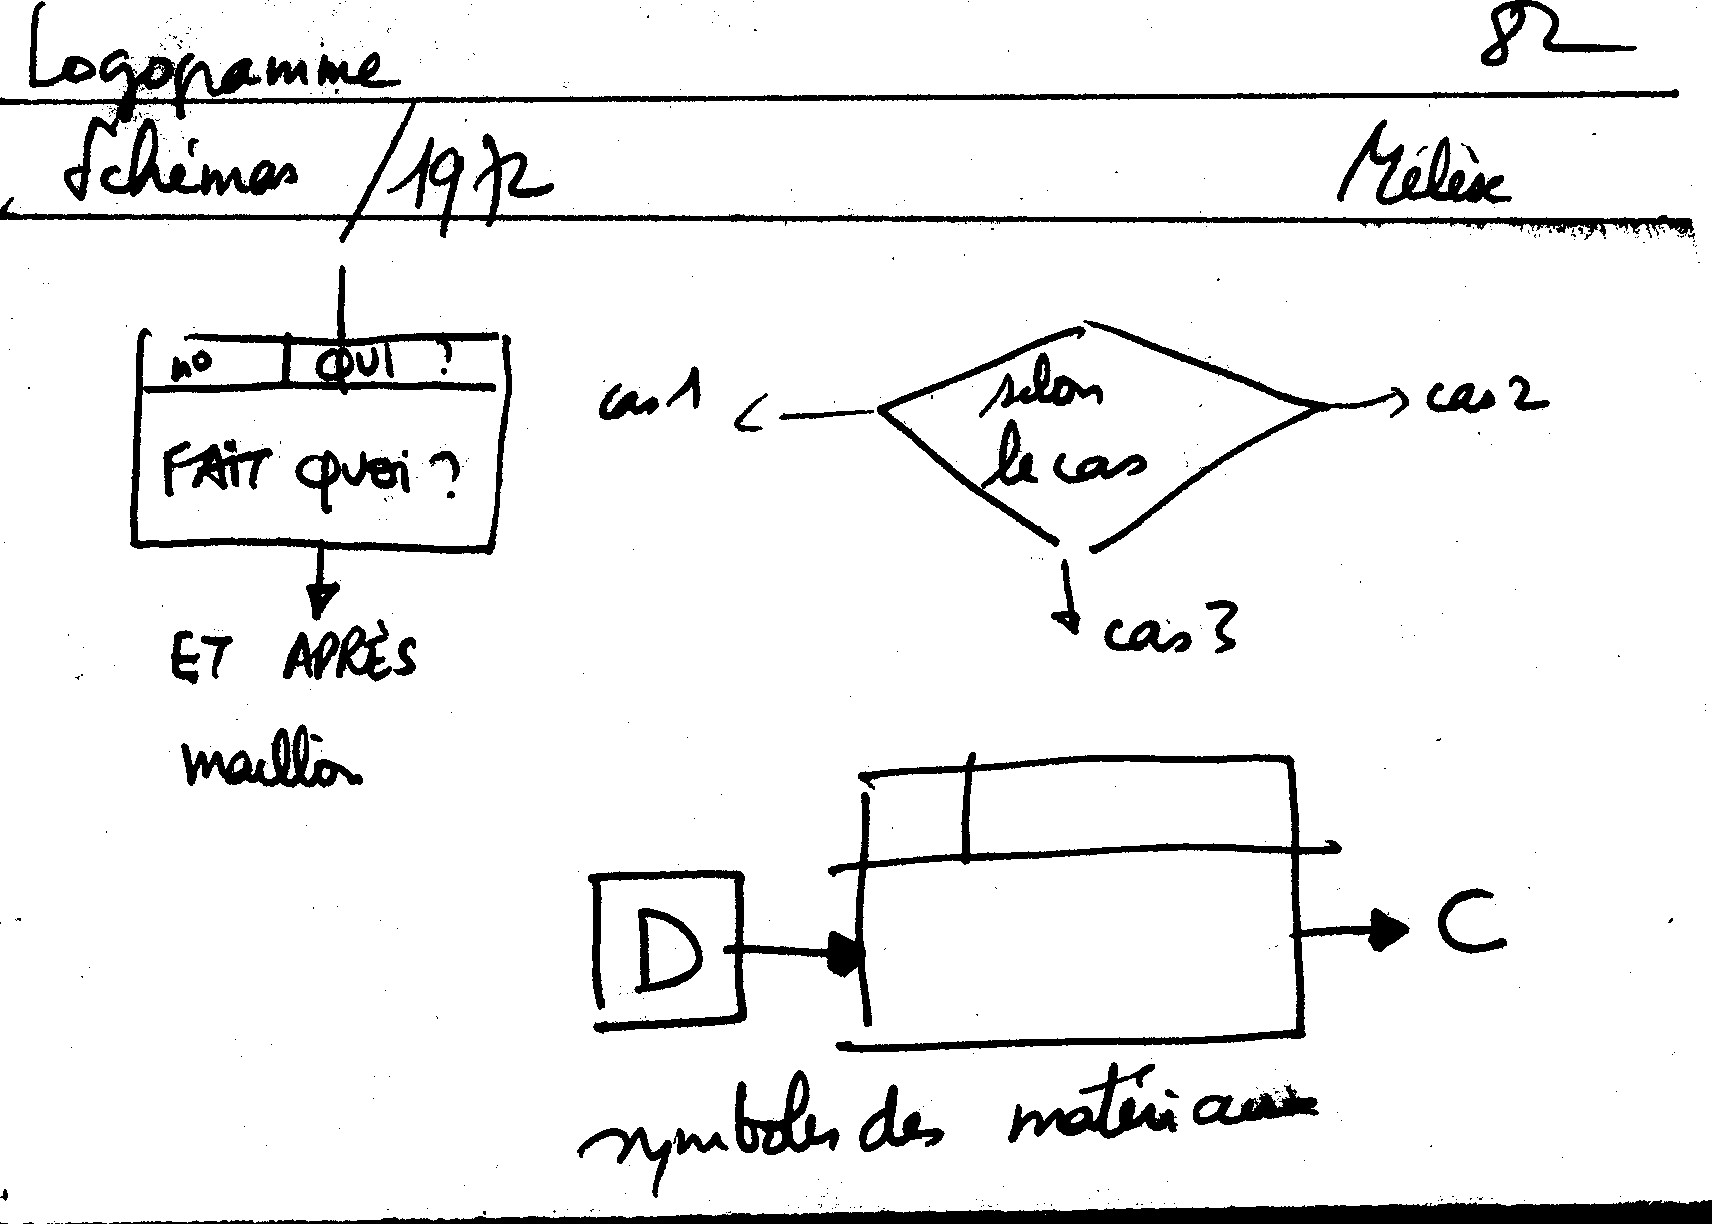 Logogramme 82
Schémas / 1972 Mélèse
no QUI ?
FAIT QUOI ?
ET APRÈS
maillon
selon
le cas
cas 1
cas 2
cas 3
D
C
symboles des matériaux